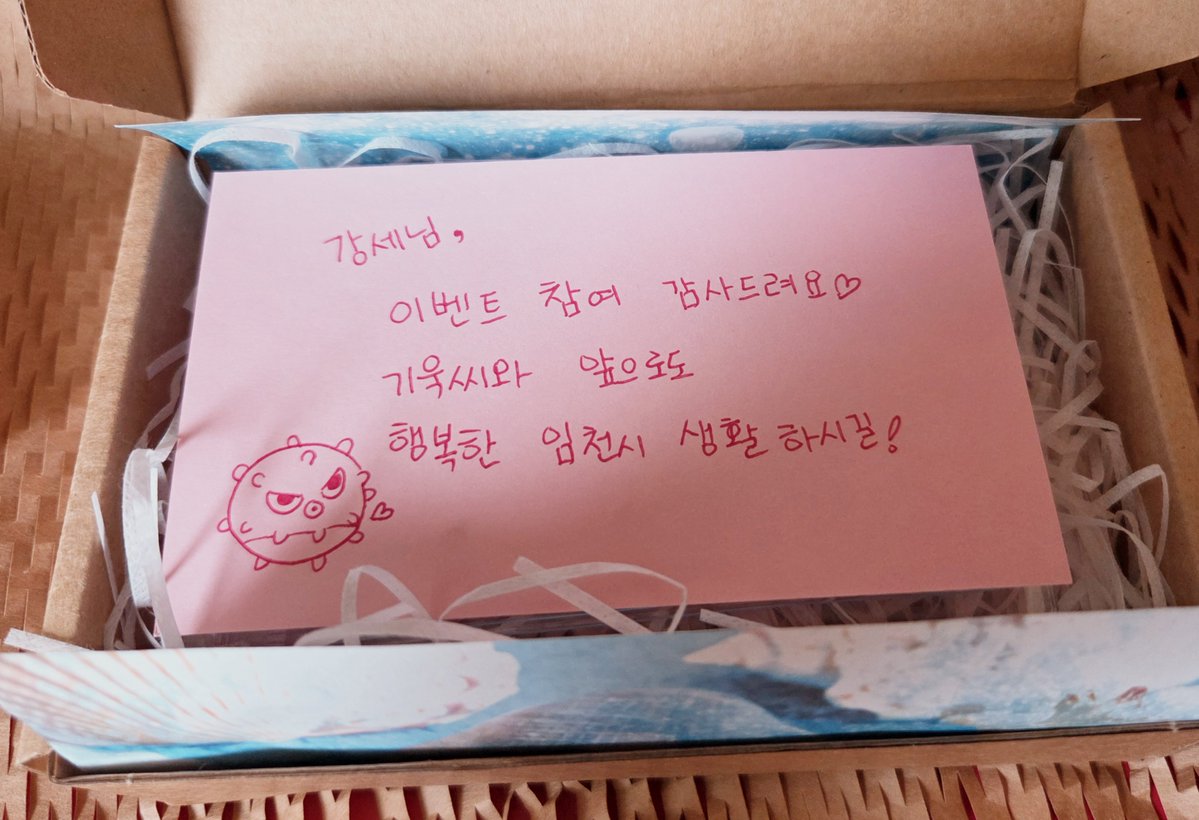 강세님,
이벤트 참여 감사드려요♡
기욱씨와 앞으로도
행복한 임천시 생활 하시길!